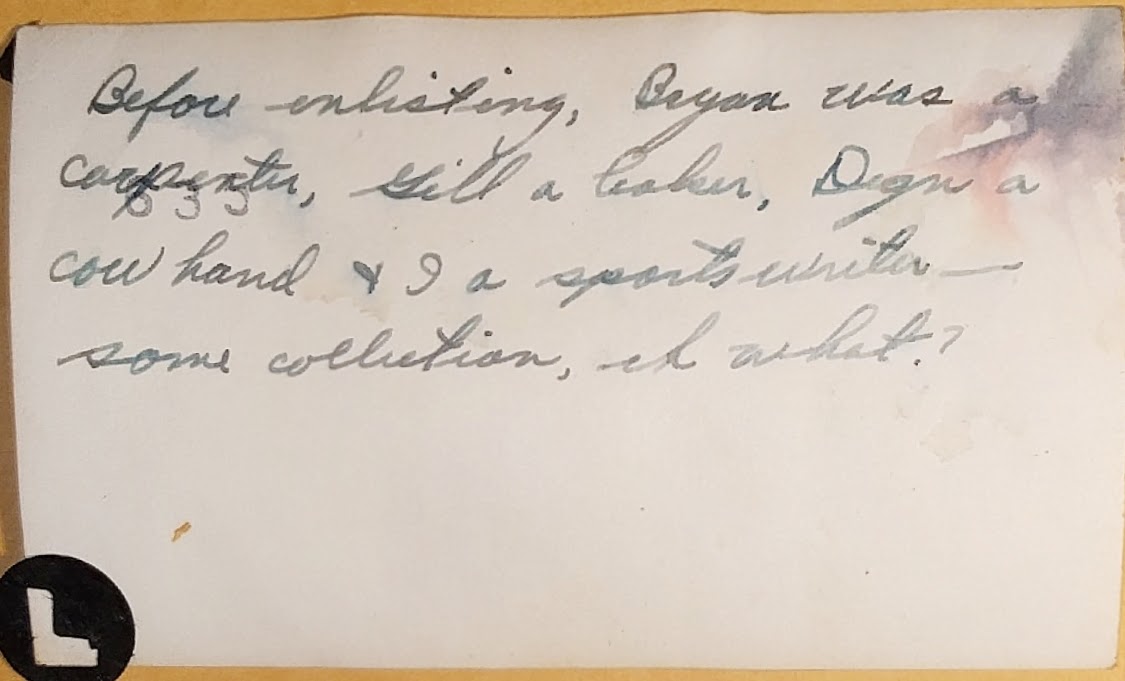 Before enlisting, Bryan was a
carpenter, Gill a baker, Degn a
cow hand & I a sports writer —
some collection, eh what?
633
L